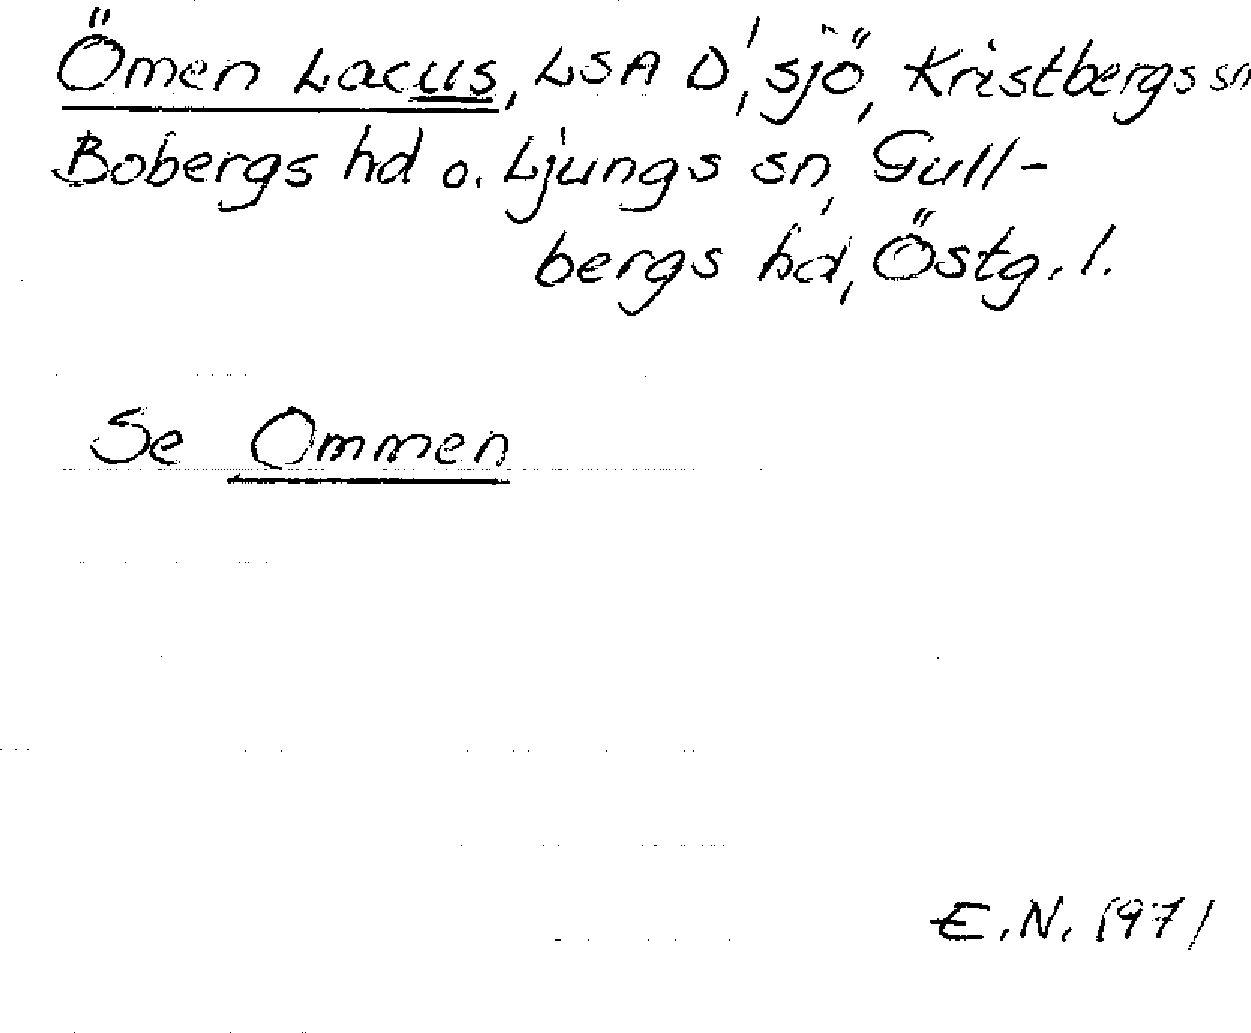 Ömen Lacus, LSA D', sjö, Kristbergs sn
Bobergs hd o. Ljungs sn, Gull-
bergs hd, Östg. l.
Se Ommen
E.N. 1971